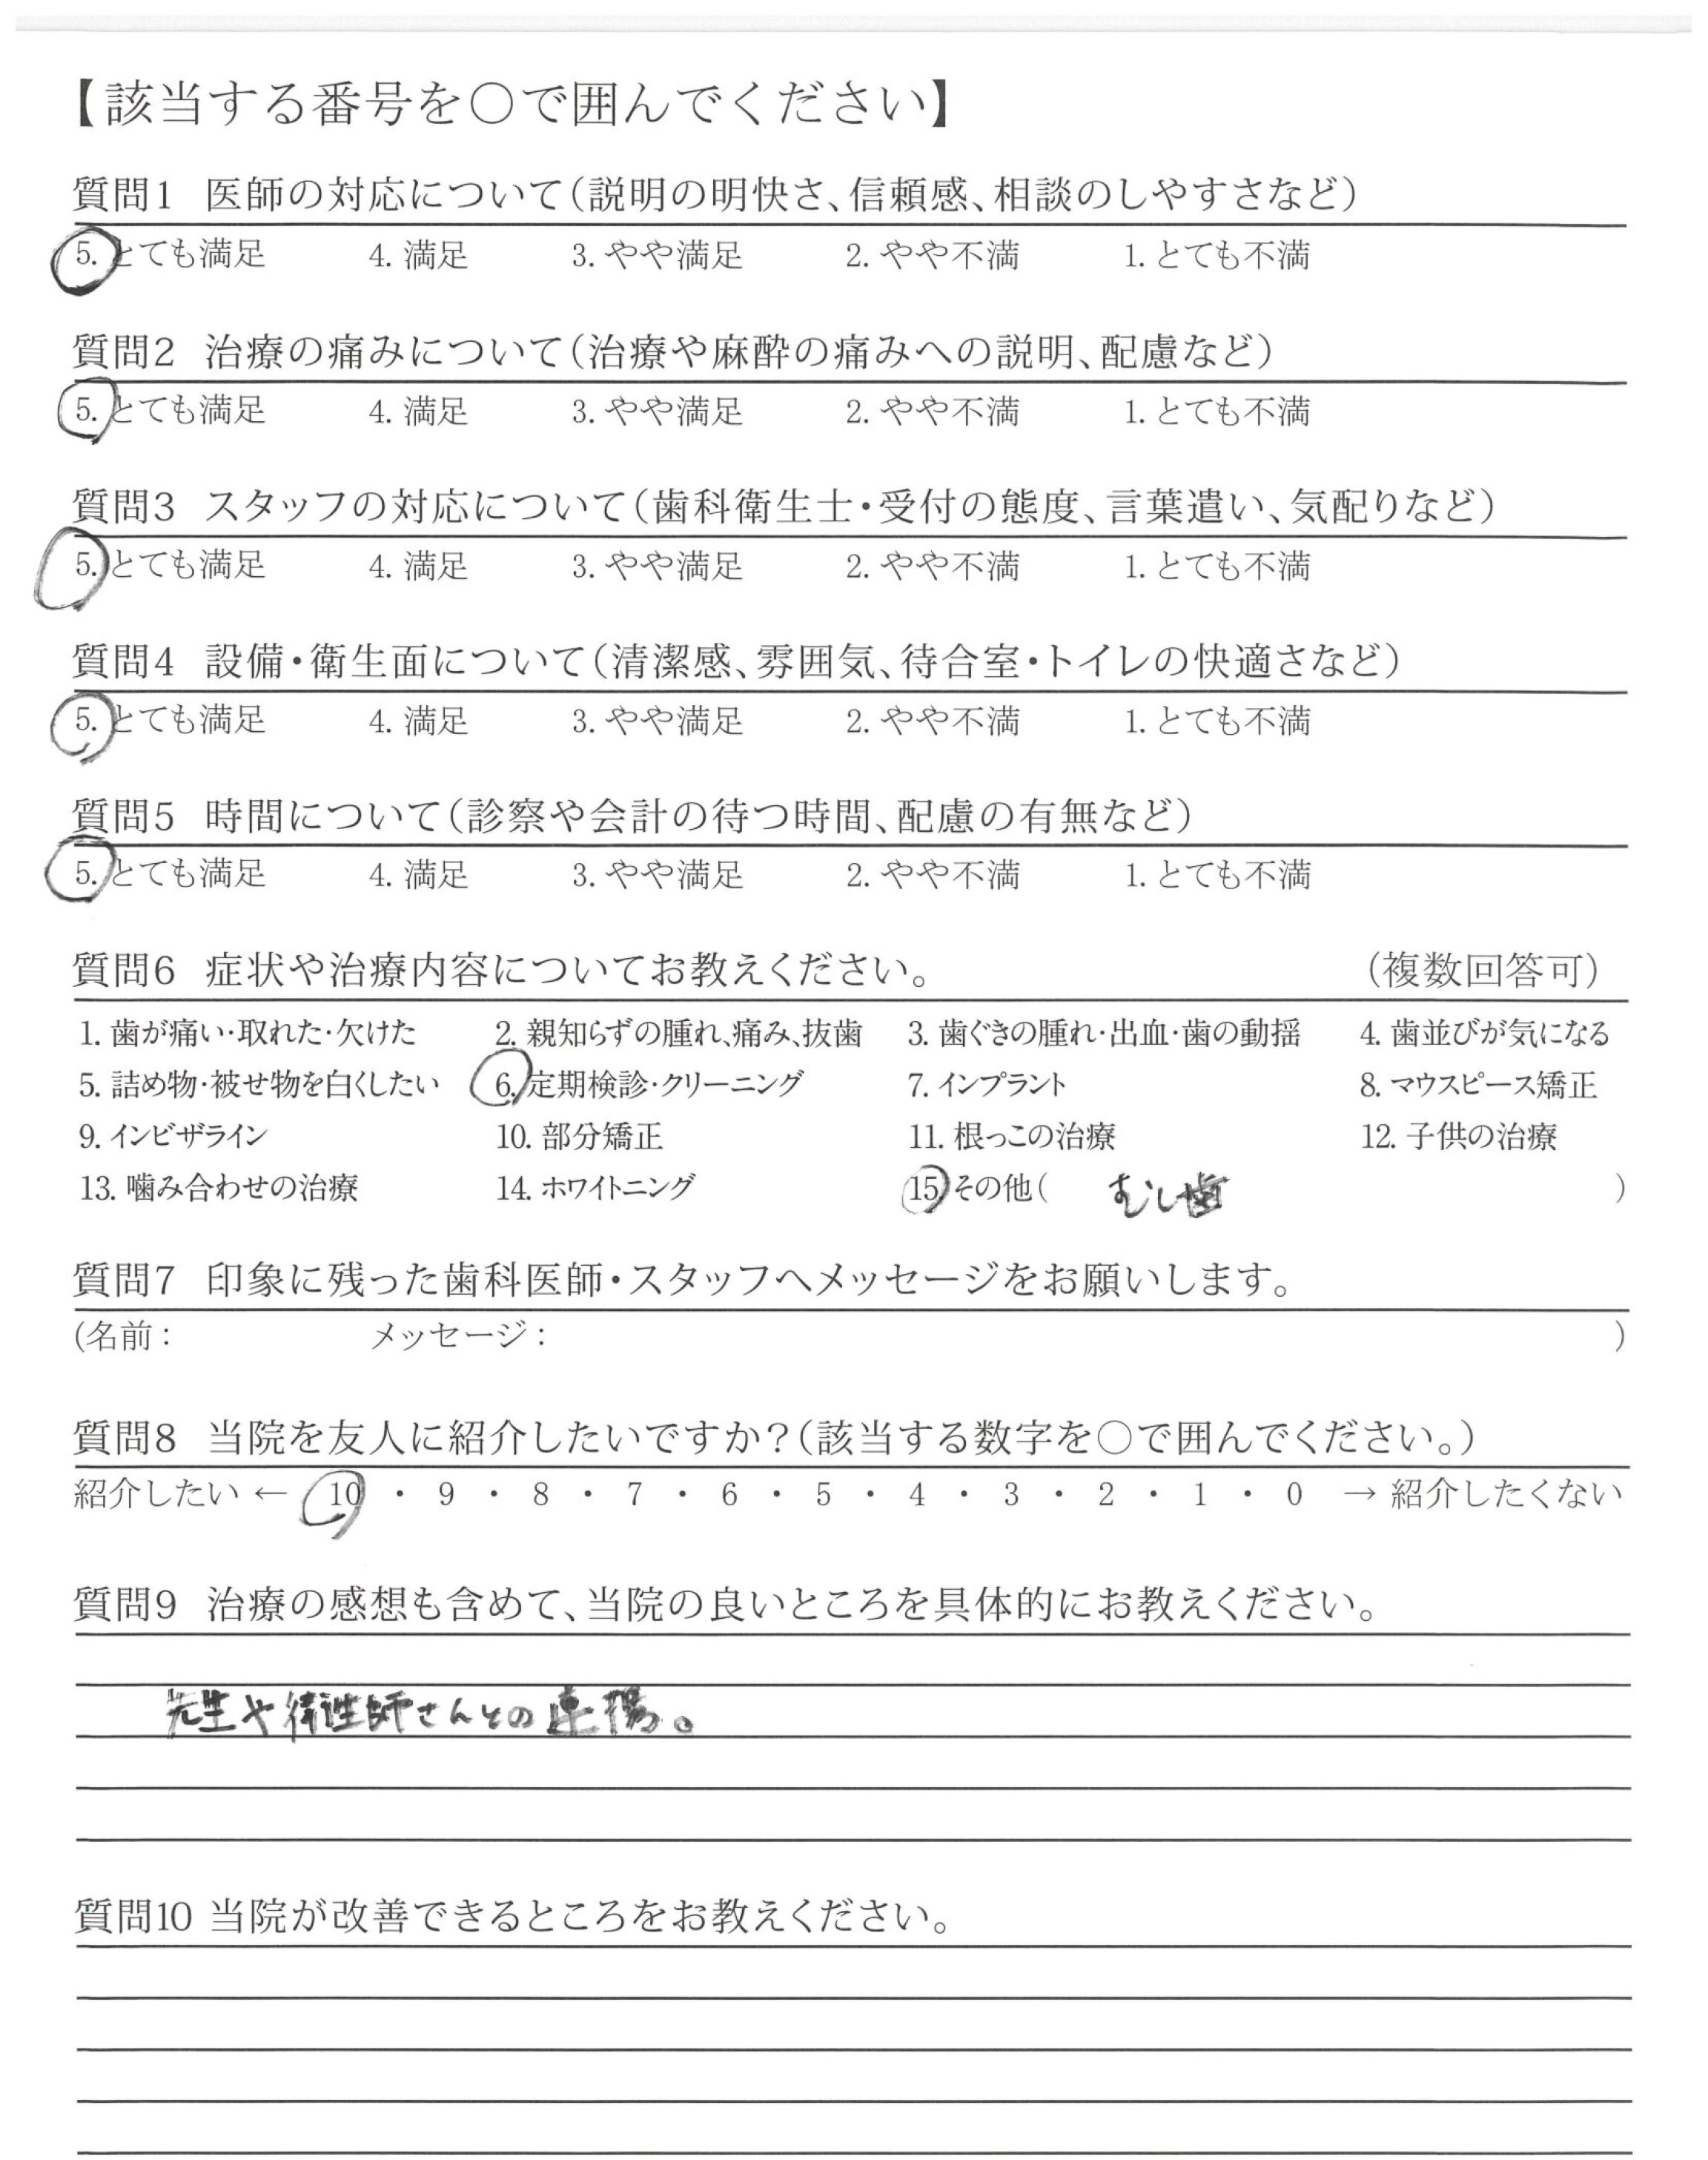 【該当する番号を○で囲んでください】
質問1 医師の対応について(説明の明快さ、信頼感、相談のしやすさなど)
5. とても満足 4. 満足 3. やや満足 2. やや不満 1. とても不満
質問2 治療の痛みについて(治療や麻酔の痛みへの説明、配慮など)
5. とても満足 4. 満足 3. やや満足 2. やや不満 1. とても不満
質問3 スタッフの対応について(歯科衛生士・受付の態度、言葉遣い、気配りなど)
5. とても満足 4. 満足 3. やや満足 2. やや不満 1. とても不満
質問4 設備・衛生面について(清潔感、雰囲気、待合室・トイレの快適さなど)
5. とても満足 4. 満足 3. やや満足 2. やや不満 1. とても不満
質問5 時間について(診察や会計の待つ時間、配慮の有無など)
5. とても満足 4. 満足 3. やや満足 2. やや不満 1. とても不満
質問6 症状や治療内容についてお教えください。 (複数回答可)
1. 歯が痛い・取れた・欠けた 2. 親知らずの腫れ、痛み、抜歯 3. 歯ぐきの腫れ・出血・歯の動揺 4. 歯並びが気になる
5. 詰め物・被せ物を白くしたい 6. 定期検診・クリーニング 7. インプラント 8. マウスピース矯正
9. インビザライン 10. 部分矯正 11. 根っこの治療 12. 子供の治療
13. 噛み合わせの治療 14. ホワイトニング 15. その他( むし歯 )
質問7 印象に残った歯科医師・スタッフへメッセージをお願いします。
(名前: メッセージ: )
質問8 当院を友人に紹介したいですか?(該当する数字を○で囲んでください。)
紹介したい ← 10 ・ 9 ・ 8 ・ 7 ・ 6 ・ 5 ・ 4 ・ 3 ・ 2 ・ 1 ・ 0 → 紹介したくない
質問9 治療の感想も含めて、当院の良いところを具体的にお教えください。
先生や衛生師さんとの連携。
質問10 当院が改善できるところをお教えください。